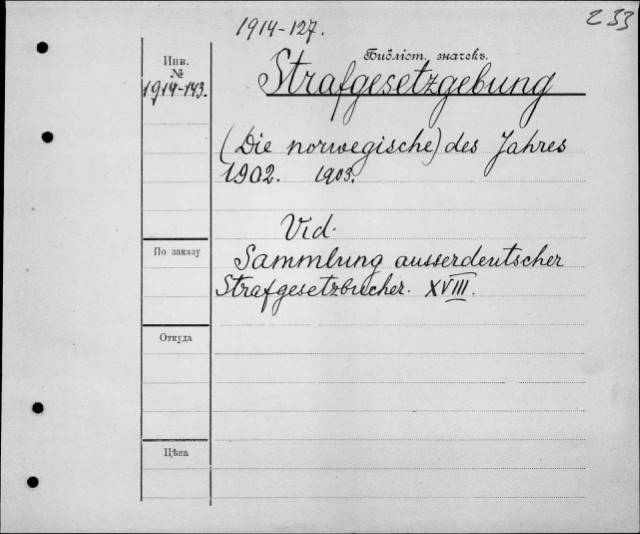 1914-127.
233
Библіот. значекъ.
Strafgesetzgebung
Инв.
№
1914-143.
(Die norwegische) des Jahres
1902. 1903.
Vid.
По заказу
Sammlung ausserdeutscher
Strafgesetzbucher. XVIII.
Откуда
Цѣна